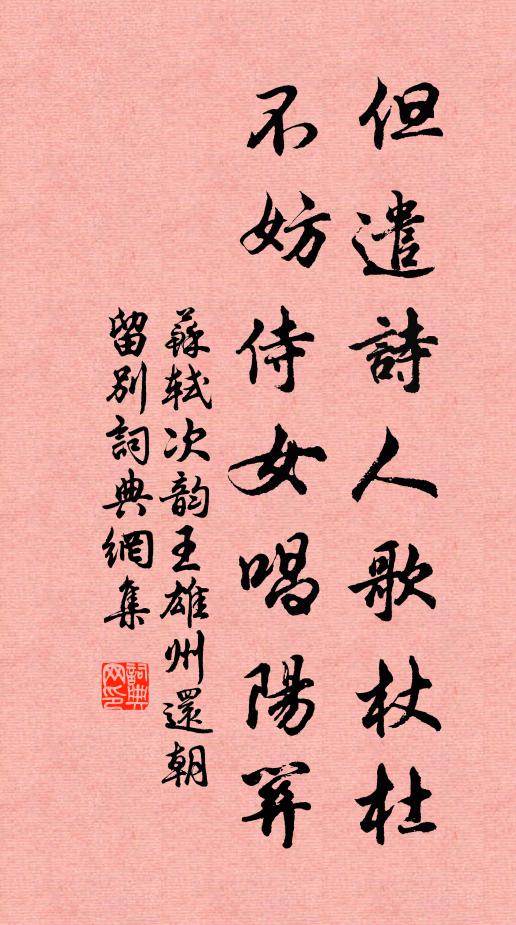 但遣詩人歌杕杜
不妨侍女唱陽關
蘇軾次韵王雄州還朝
留別詞典網集
詞典网印